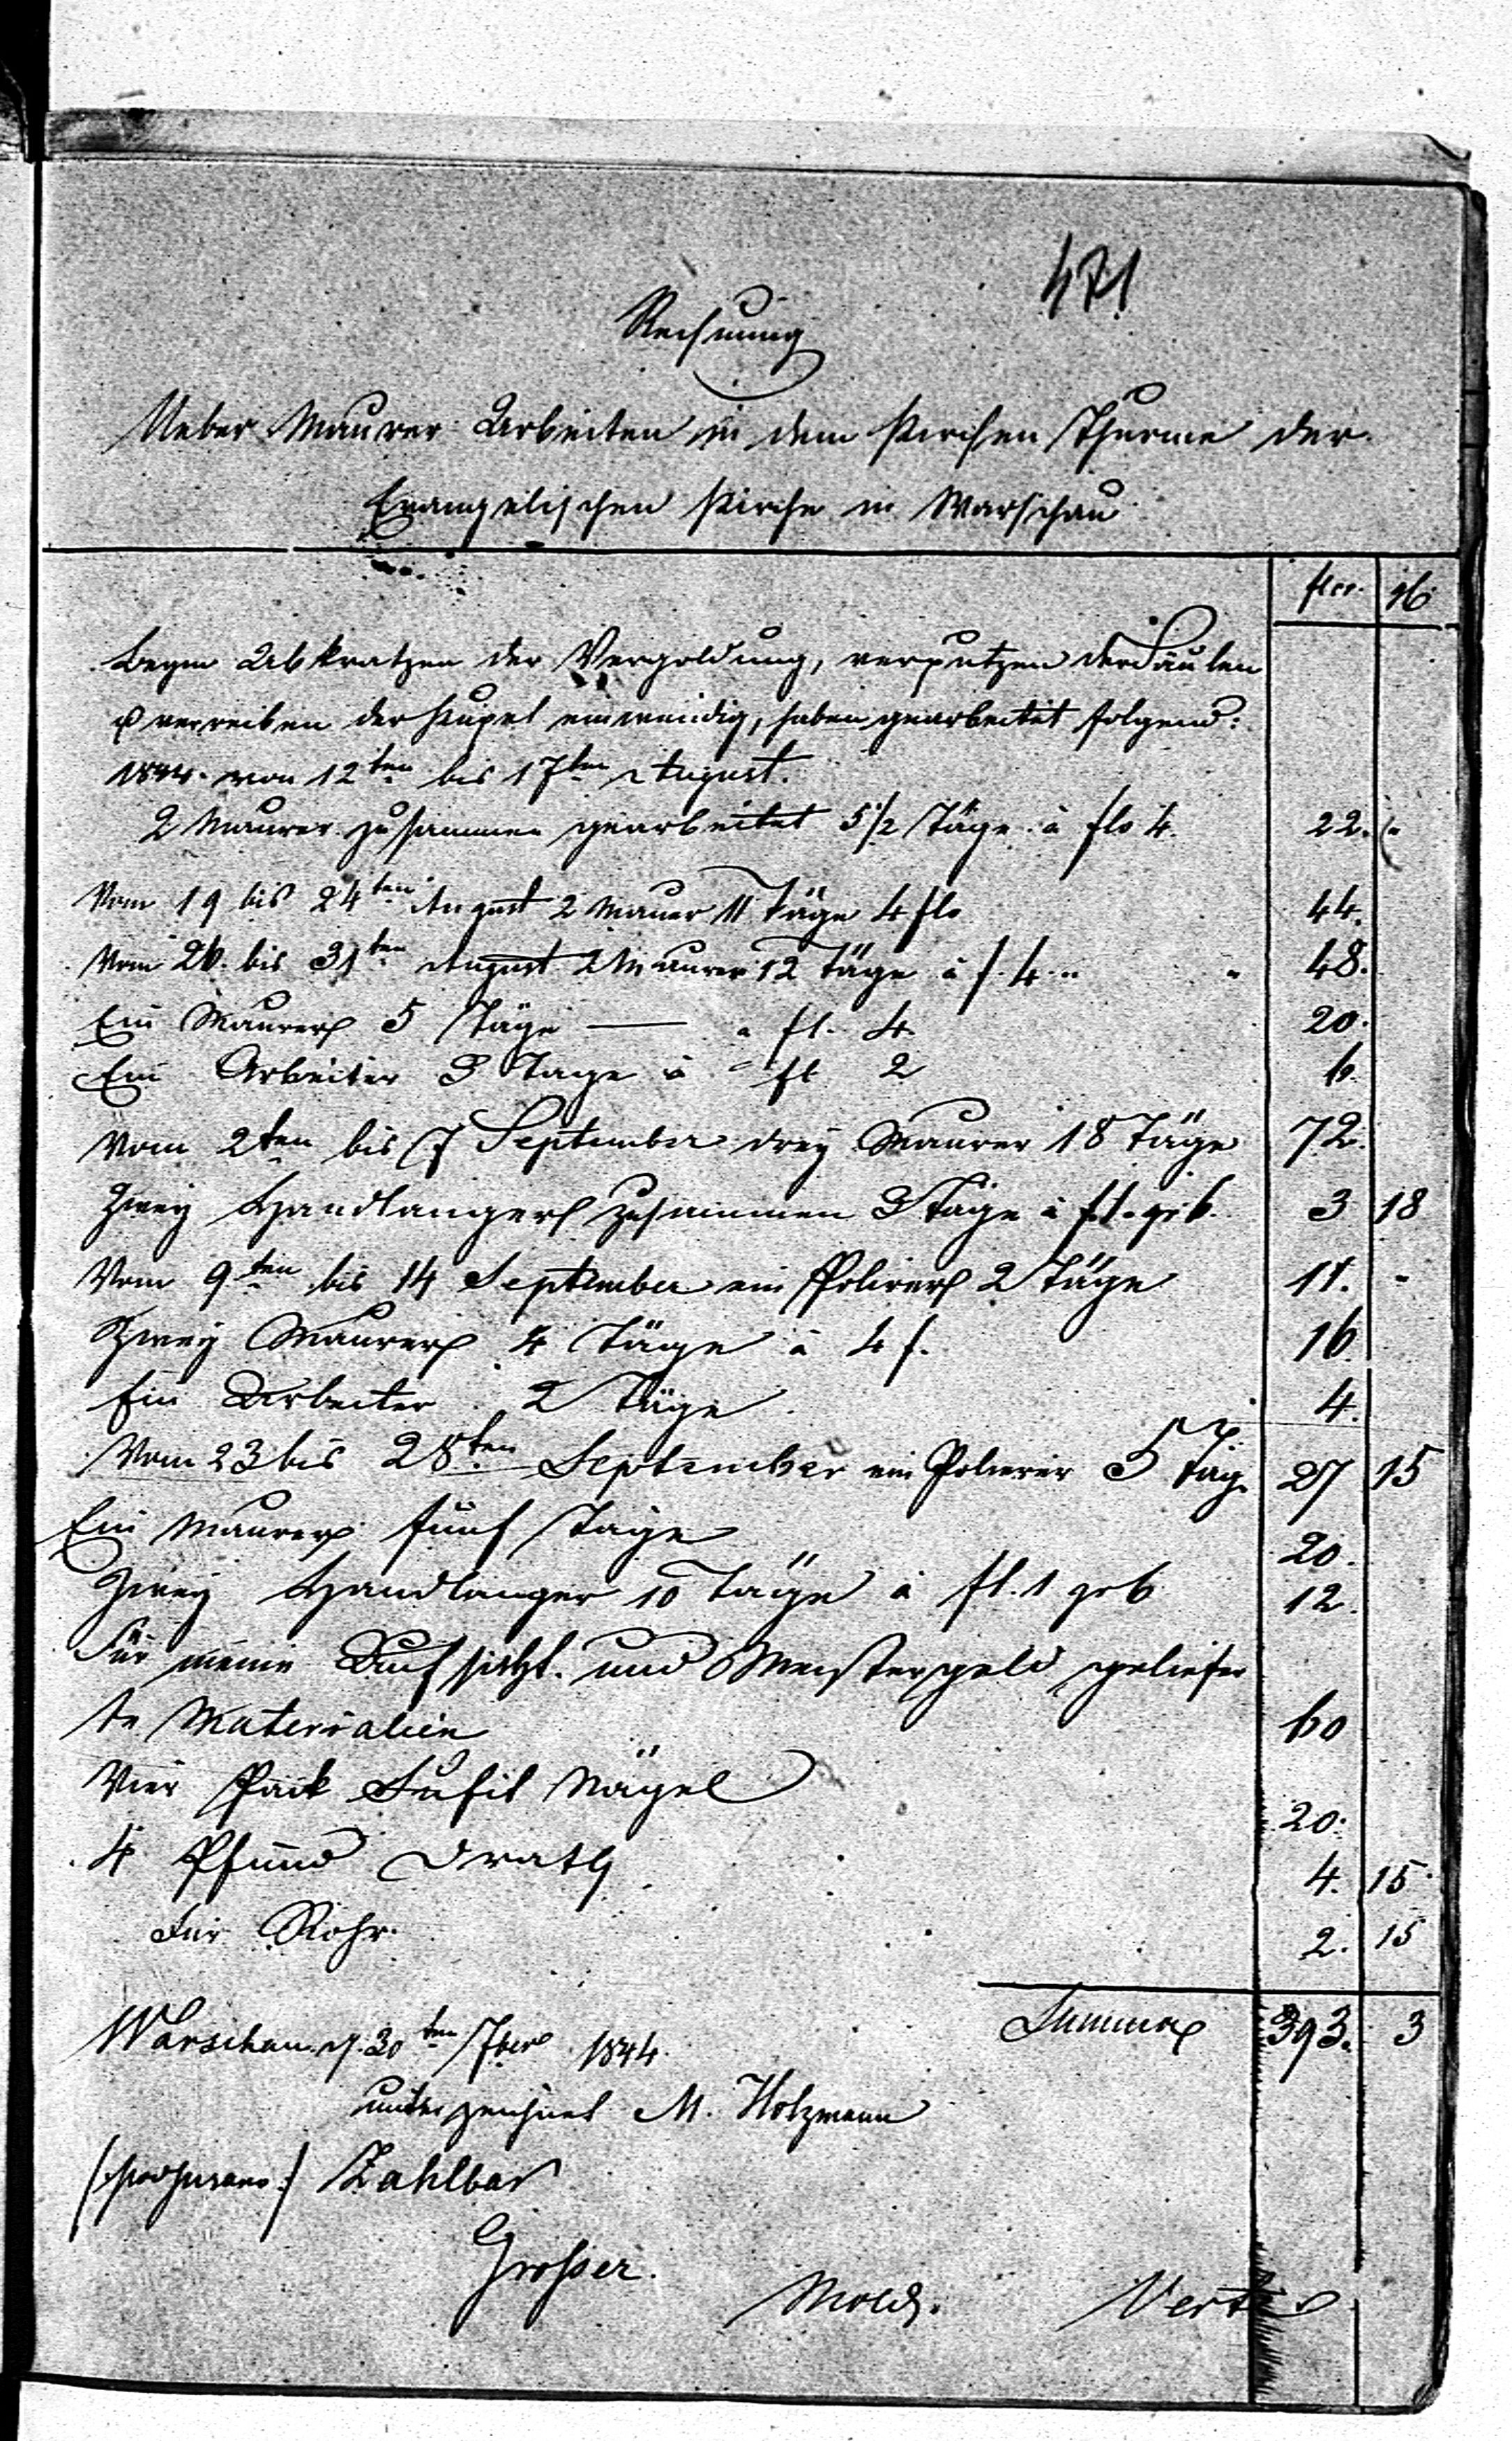 471
Rechnung
Ueber Maurer Arbeiten in dem Kirchen Thurme der
Evangelischen Kirche in Warschau
flor.
Beym Abkratzen der Vergoldung, verputzen der Säulen
verreiben der Kupel einwendig, haben gearbeitet folgend:
1844. von 12ten bis 17ten August.
2 Maurer zusammen gearbeitet 5½ Täge à flo 4. 22.
Vom 19 bis 24ten August 2 Maurer 11 Täge 4 flo 44.
Vom 26. bis 31ten August 2 Maurer 12 Täge à f. 4 48.
Ein Maurer 5 Täge — a fl. 4. 20.
Ein Arbeiter 3 Tage à fl 2 6
Vom 2ten bis 7 September drey Maurer 18 Täge 72.
Zwey Handlanger zusammen 3 Täge à f. 1. gr 6. 3 18
Vom 9ten bis 14 September ein Polirer 2 Täge 11. -
Zwey Maurer 4 Täge à 4 f. 16
Ein Arbeiter 2 Täge 4.
Vom 23 bis 28ten September ein Polierer 5 Täg. 27 15
Ein Maurer fünf Tage 20.
Zwey Handlanger 10 Täge à fl. 1 gr 6 12.
Für meine Aufsicht. und Meistergeld geliefer
te Materialien 60
Vier Pack Sufit Nägel 20.
4 Pfund Drath 4. 15
Für Rohr. 2. 15
Summa 393. 3
Warschau d. 30ten 7ber 1844.
unterzeichnet M. Holzmann
Zahlbar
Grosser.